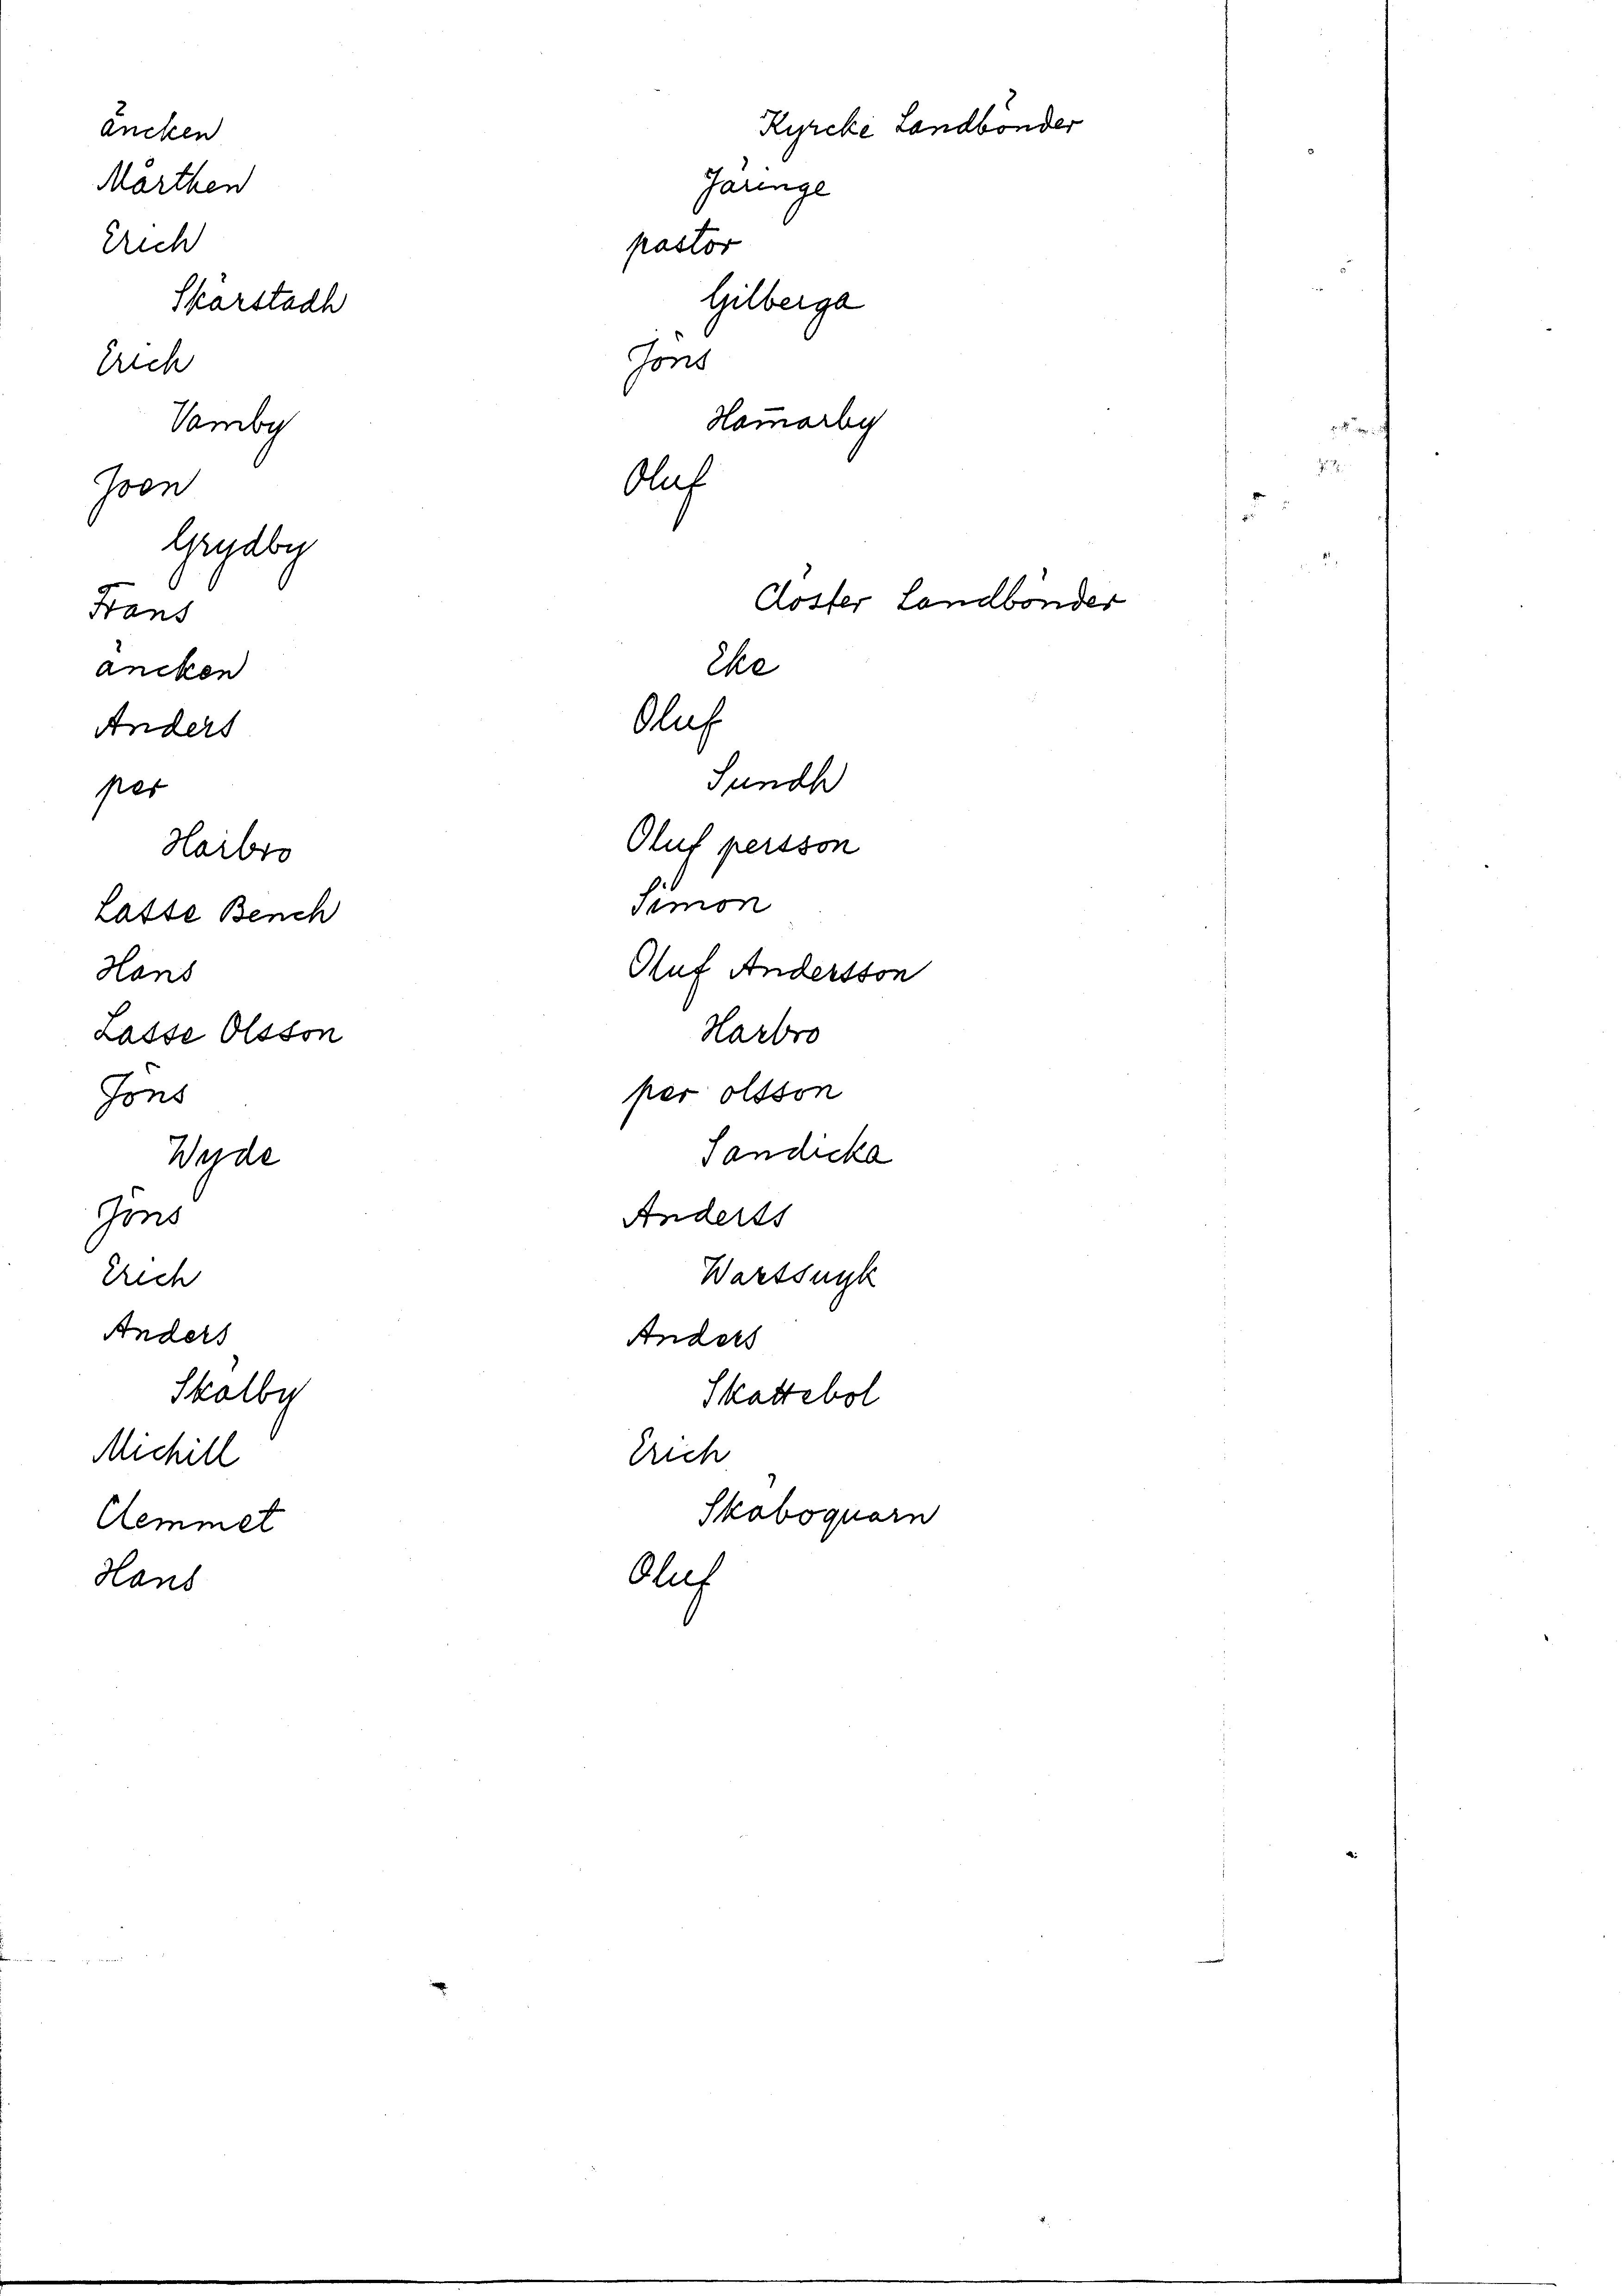 äncken
Mårthen
Erich
Skärstadh
Erich
Vamby
Joen
Grydby
Frans
äncken
Anders
per
Harbro
Lasse Bench
Hans
Lasse Olsson
Jöns
Wyde
Jöns
Erich
Anders
Skålby
Michill
Clemmet
Hans
Kyrcke Landbönder
Järinge
pastor
Gilberga
Jöns
Ham̄arby
Oluf
Closter Landbönder
Eke
Oluf
Sundh
Oluf persson
Simon
Oluf Andersson
Harbro
per olsson
Sandicka
Anderss
Warssuyk
Anders
Skattebol
Erich
Skåboquarn
Oluf